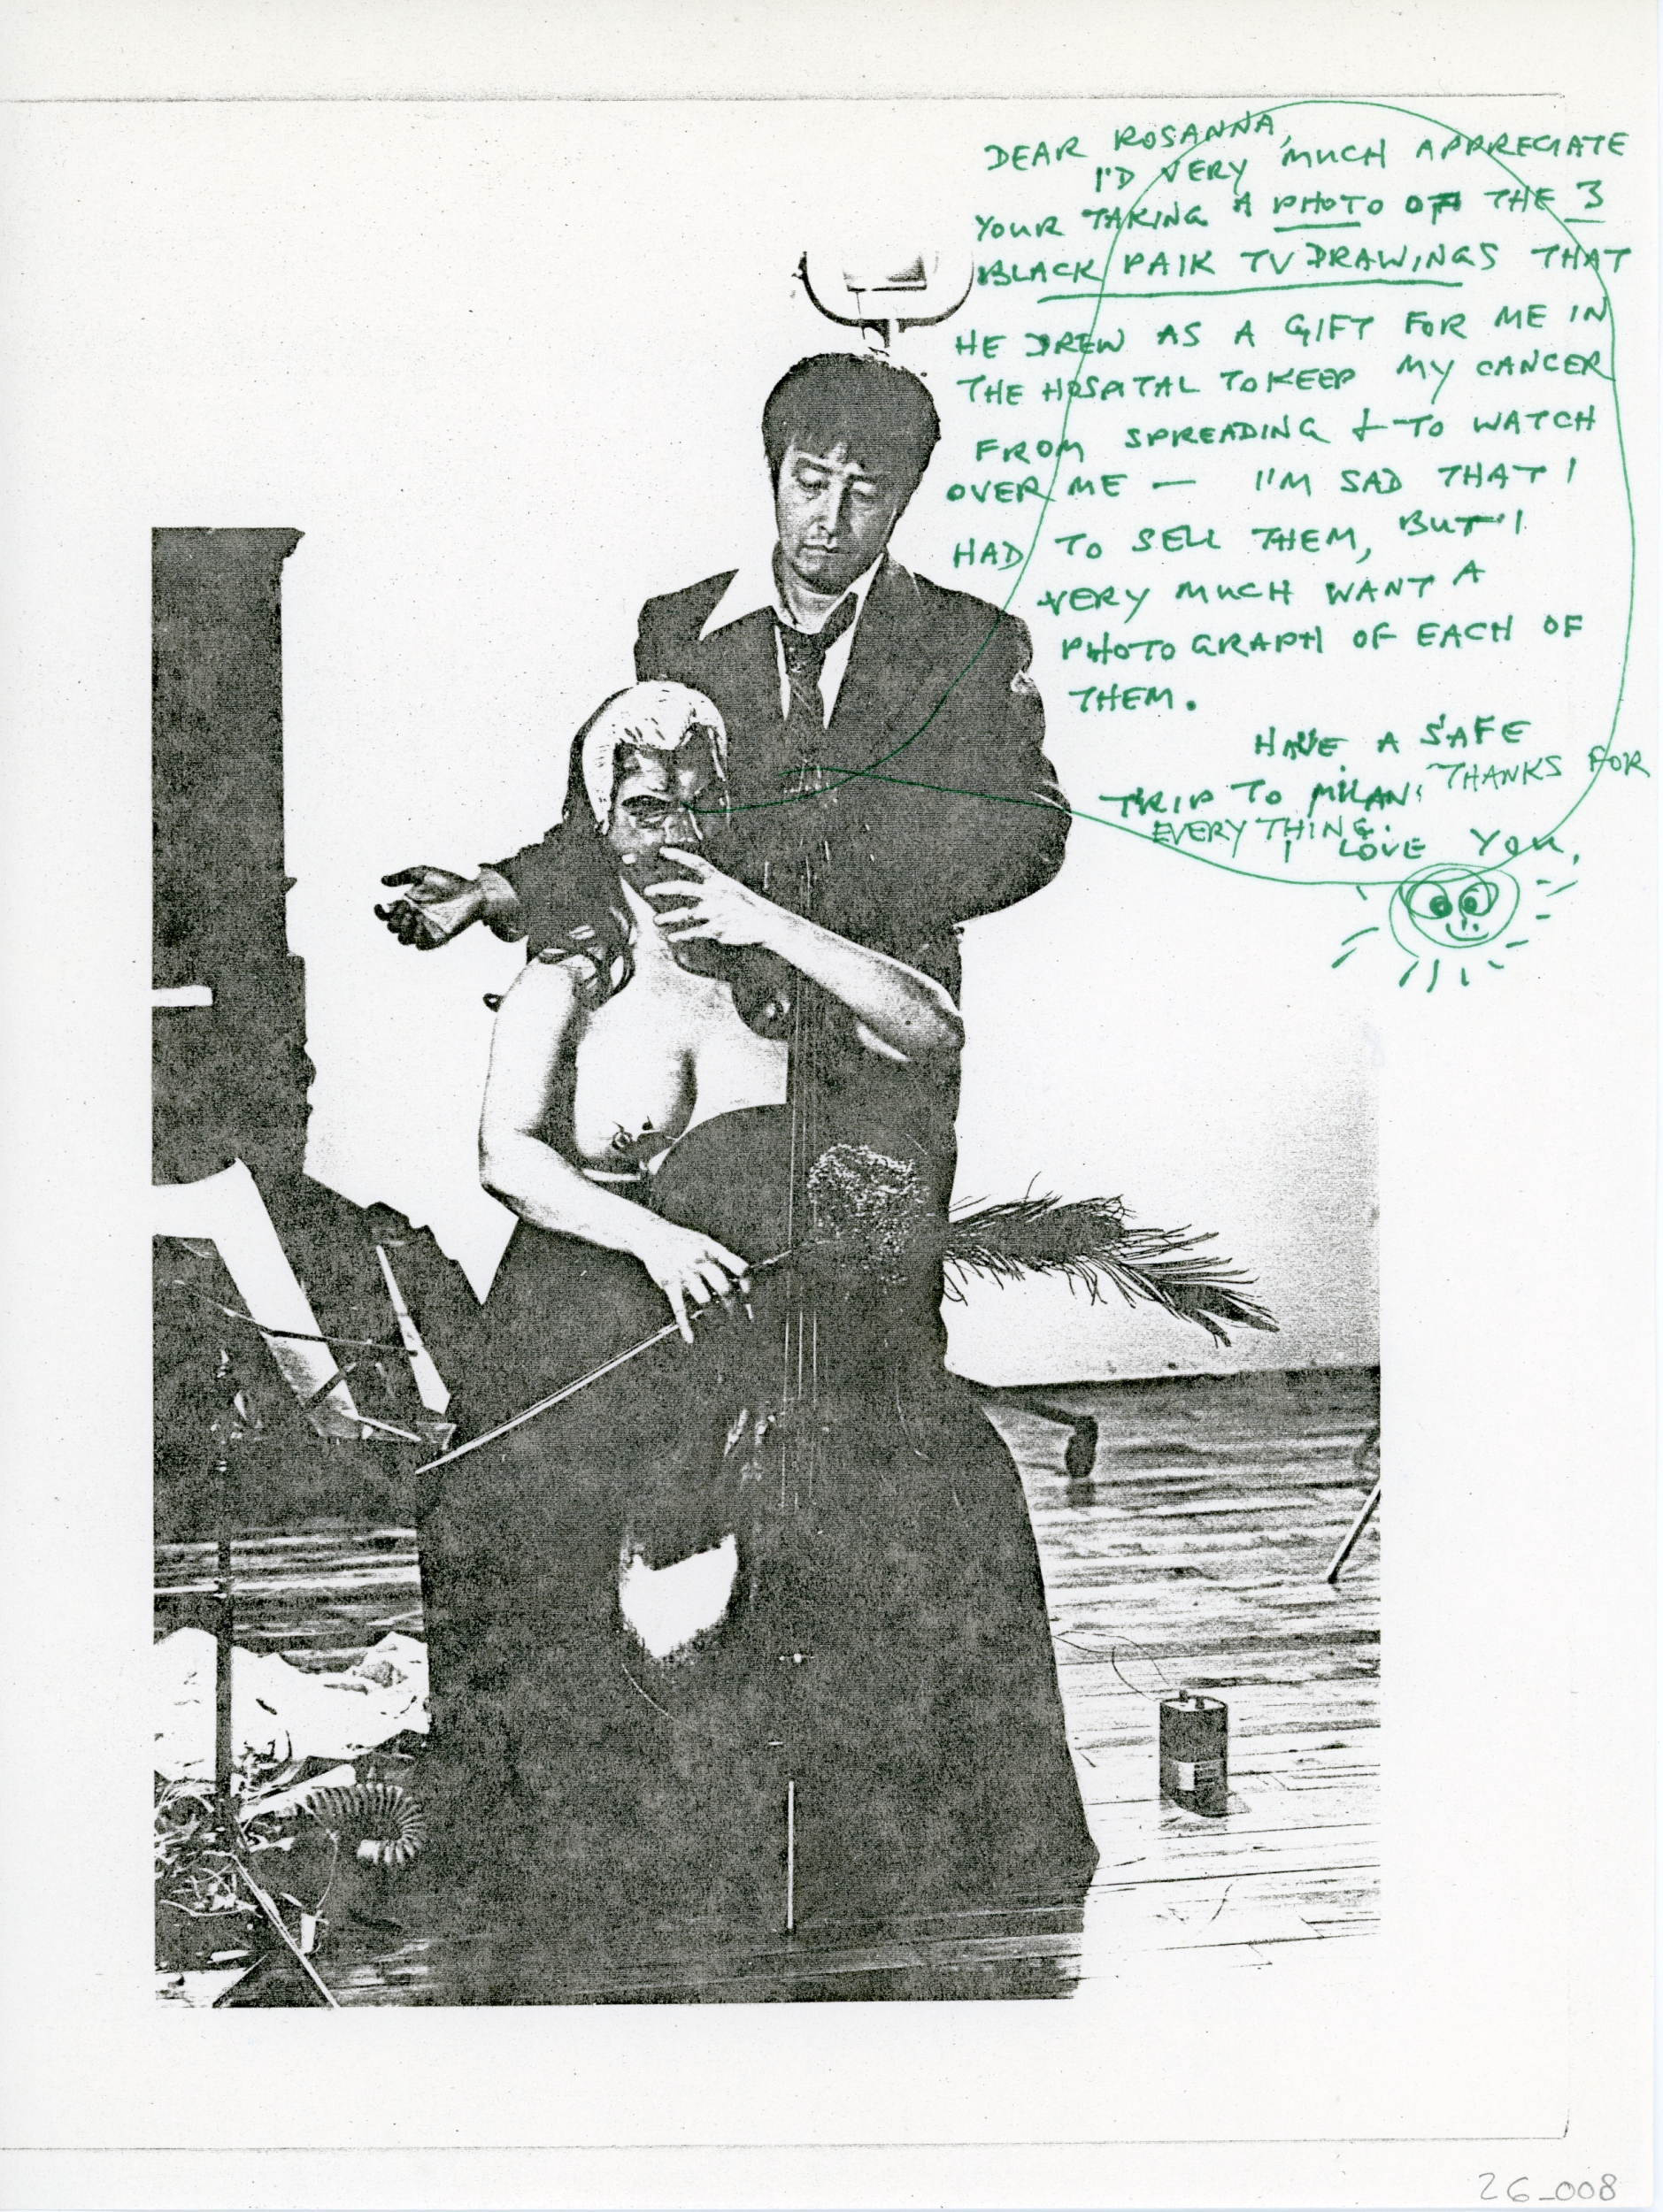 DEAR ROSANNA,
I'D VERY MUCH APPRECIATE
YOUR TAKING A PHOTO OF THE 3
BLACK PAIK TV DRAWINGS THAT
HE DREW AS A GIFT FOR ME IN
THE HOSPITAL TO KEEP MY CANCER
FROM SPREADING + TO WATCH
OVER ME — I'M SAD THAT I
HAD TO SELL THEM, BUT I
VERY MUCH WANT A
PHOTOGRAPH OF EACH OF
THEM.
HAVE A SAFE
TRIP TO MILAN. THANKS FOR
EVERYTHING.
I LOVE YOU,
26_008